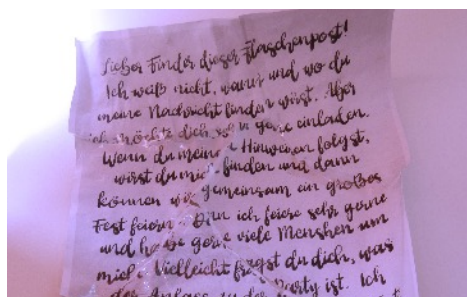 Lieber Finder dieser Flaschenpost!
Ich weiß nicht, wann und wo du
meine Nachricht finden wirst. Aber
ich möchte dich sehr gerne einladen.
Wenn du meinen Hinweisen folgst,
wirst du mich finden und dann
können wir gemeinsam ein großes
Fest feiern. Denn ich feiere sehr gerne
und habe gerne viele Menschen um
mich. Vielleicht fragst du dich, was
der Anlass zu der Party ist. Ich